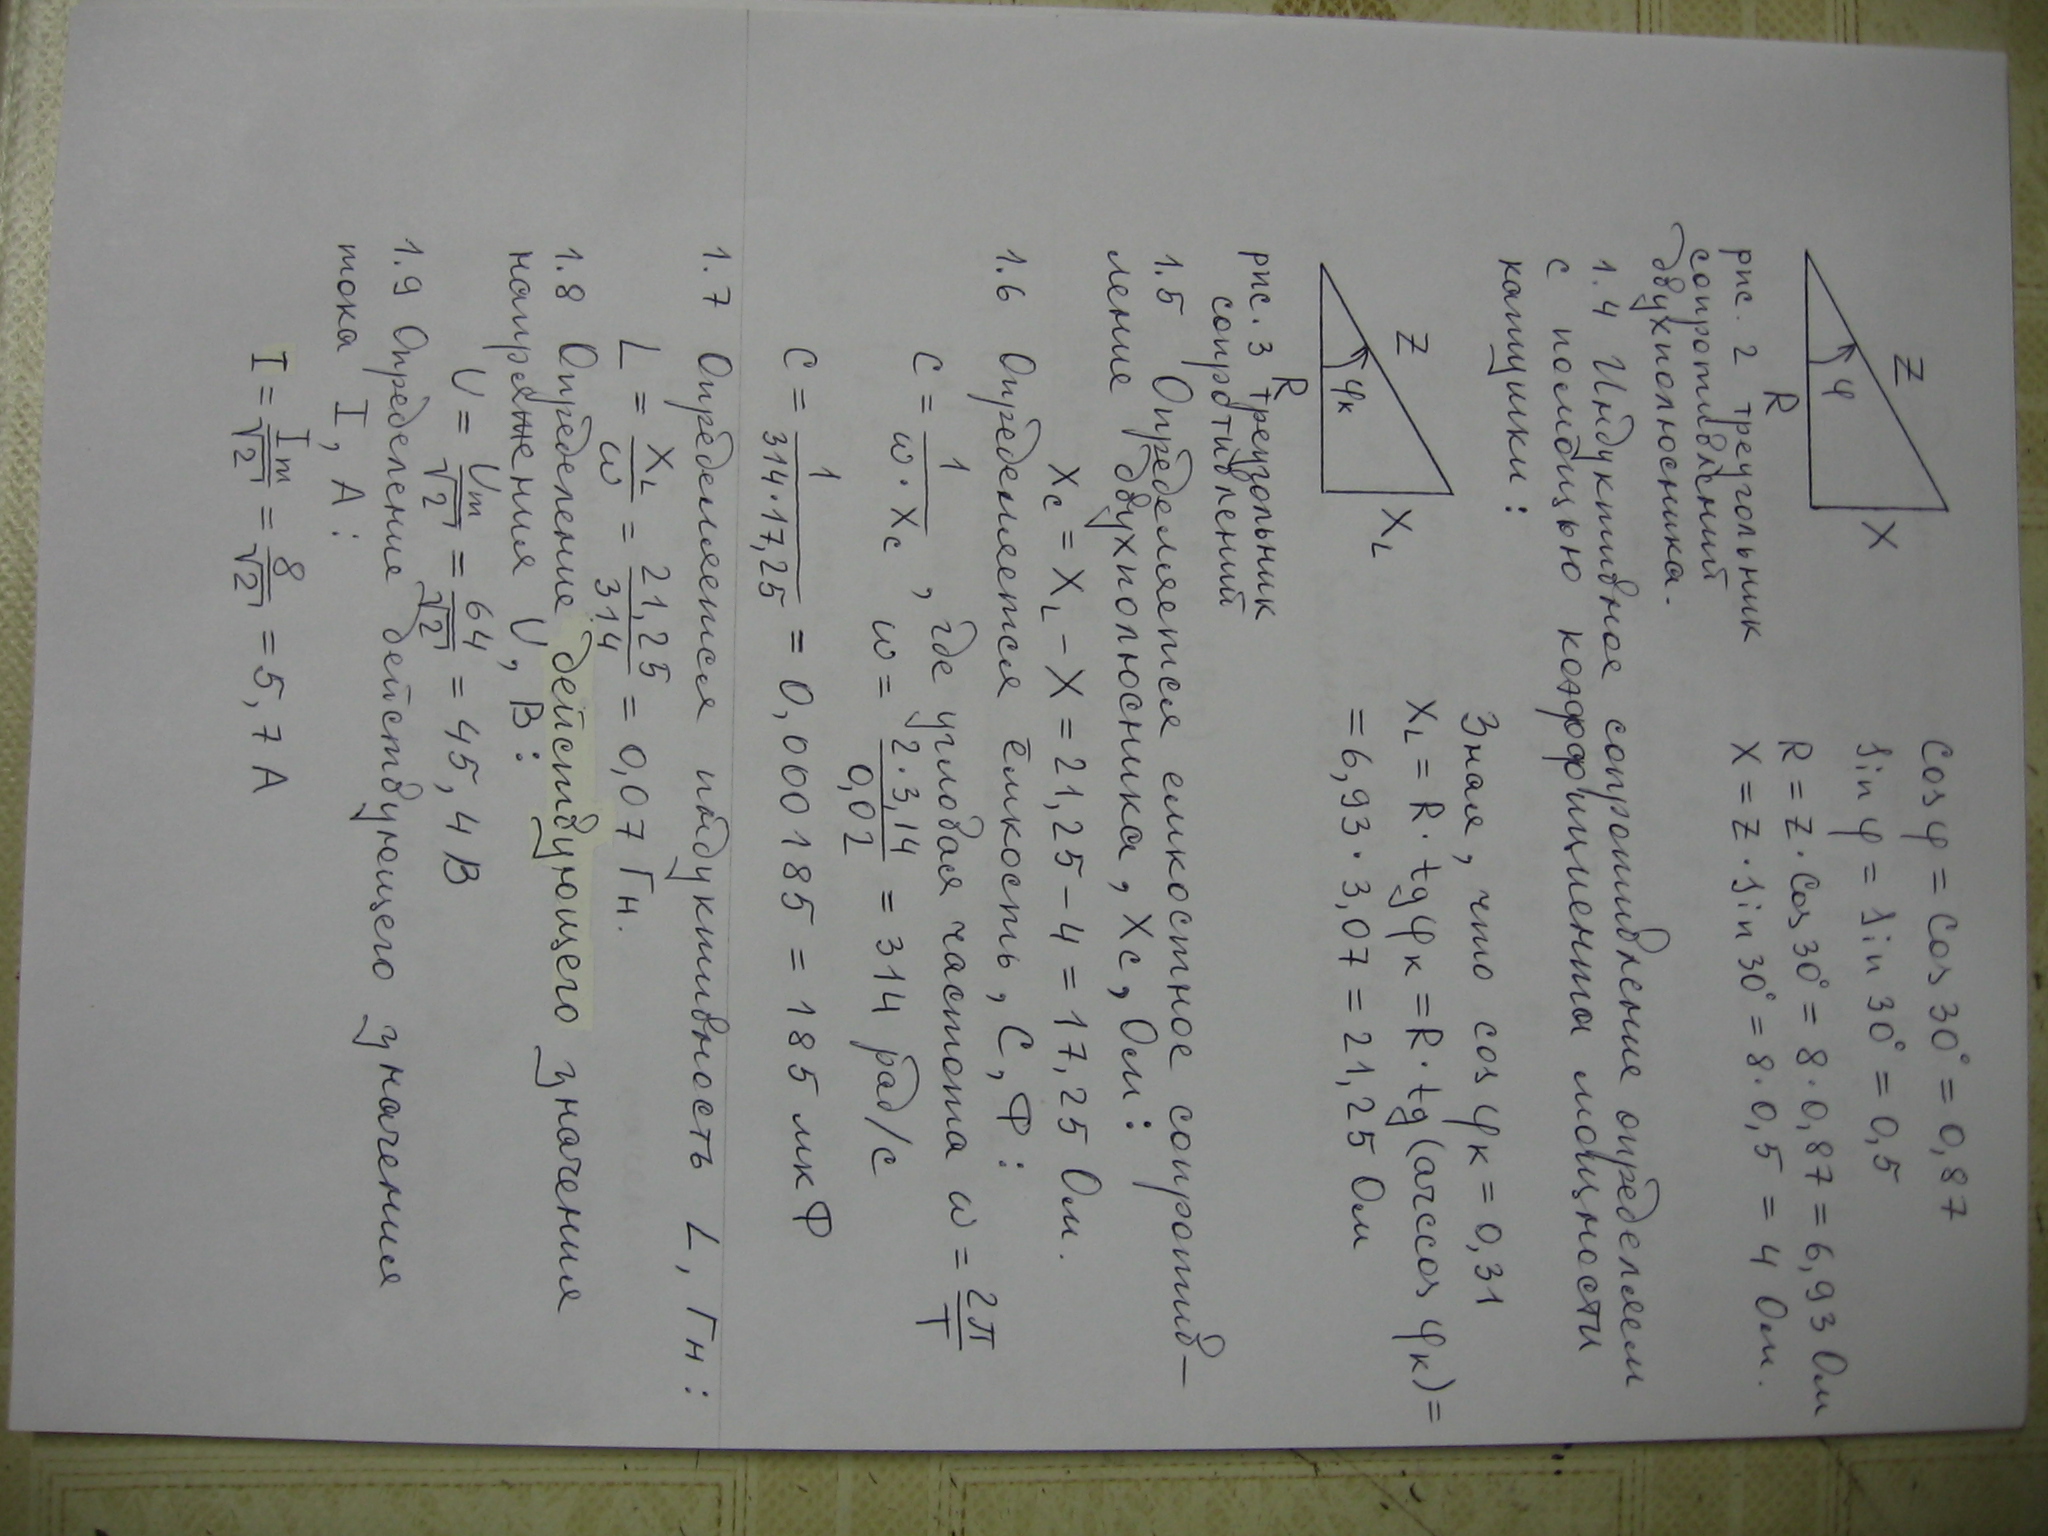 Z
φ
X
R
рис. 2 треугольник
сопротивлений
двухполюсника.
Cos φ = Cos 30° = 0,87
sin φ = sin 30° = 0,5
R = Z · Cos 30° = 8 · 0,87 = 6,93 Ом
X = Z · sin 30° = 8 · 0,5 = 4 Ом.
1.4 Индуктивное сопротивление определяем
с помощью коэффициента мощности
катушки:
Z
φк
XL
R
рис. 3 треугольник
сопротивлений
Зная, что cos φк = 0,31
XL = R · tg φк = R · tg (arccos φк) =
= 6,93 · 3,07 = 21,25 Ом
1.5 Определяется емкостное сопротив-
ление двухполюсника, Xc, Ом:
Xc = XL − X = 21,25 − 4 = 17,25 Ом.
1.6 Определяется ёмкость, C, Ф:
C = 1/(ω · Xc), где угловая частота ω = 2π/T
ω = (2 · 3,14)/0,02 = 314 рад/с
C = 1/(314 · 17,25) = 0,000185 = 185 мкФ
1.7 Определяется индуктивность L, Гн:
L = XL/ω = 21,25/314 = 0,07 Гн.
1.8 Определение действующего значения
напряжения U, В:
U = Um/√2 = 64/√2 = 45,4 В
1.9 Определение действующего значения
тока I, А:
I = Im/√2 = 8/√2 = 5,7 А